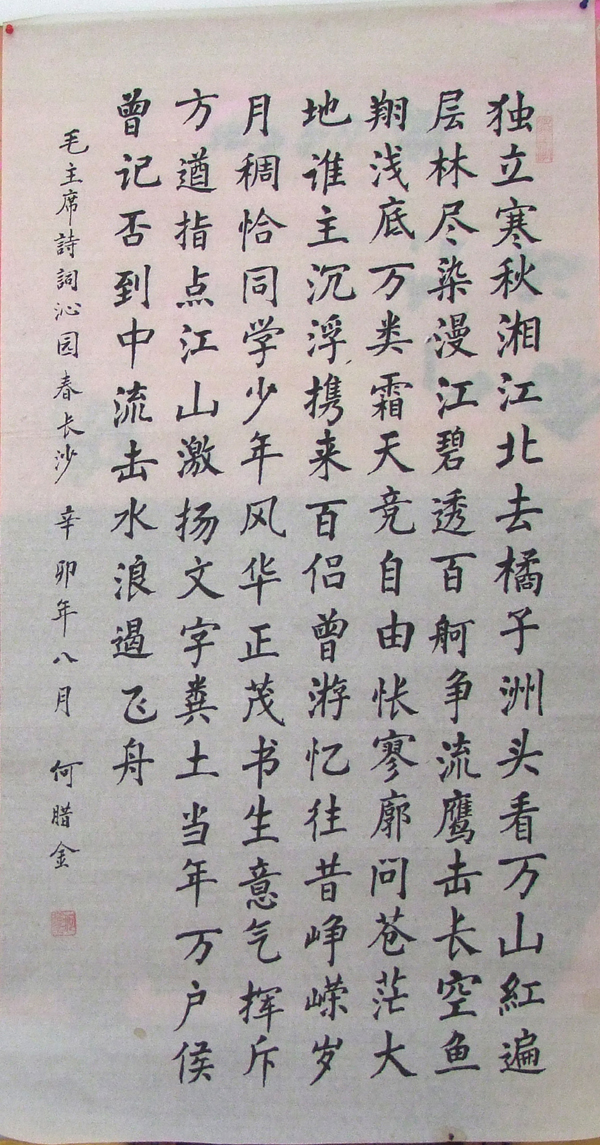 独立寒秋湘江北去橘子洲头看万山紅遍
层林尽染漫江碧透百舸争流鹰击长空鱼
翔浅底万类霜天竞自由怅寥廓问苍茫大
地谁主沉浮携来百侣曾游忆往昔峥嵘岁
月稠恰同学少年风华正茂书生意气挥斥
方遒指点江山激扬文字粪土当年万户侯
曾记否到中流击水浪遏飞舟
毛主席詩詞沁园春长沙 辛卯年八月 何腊金